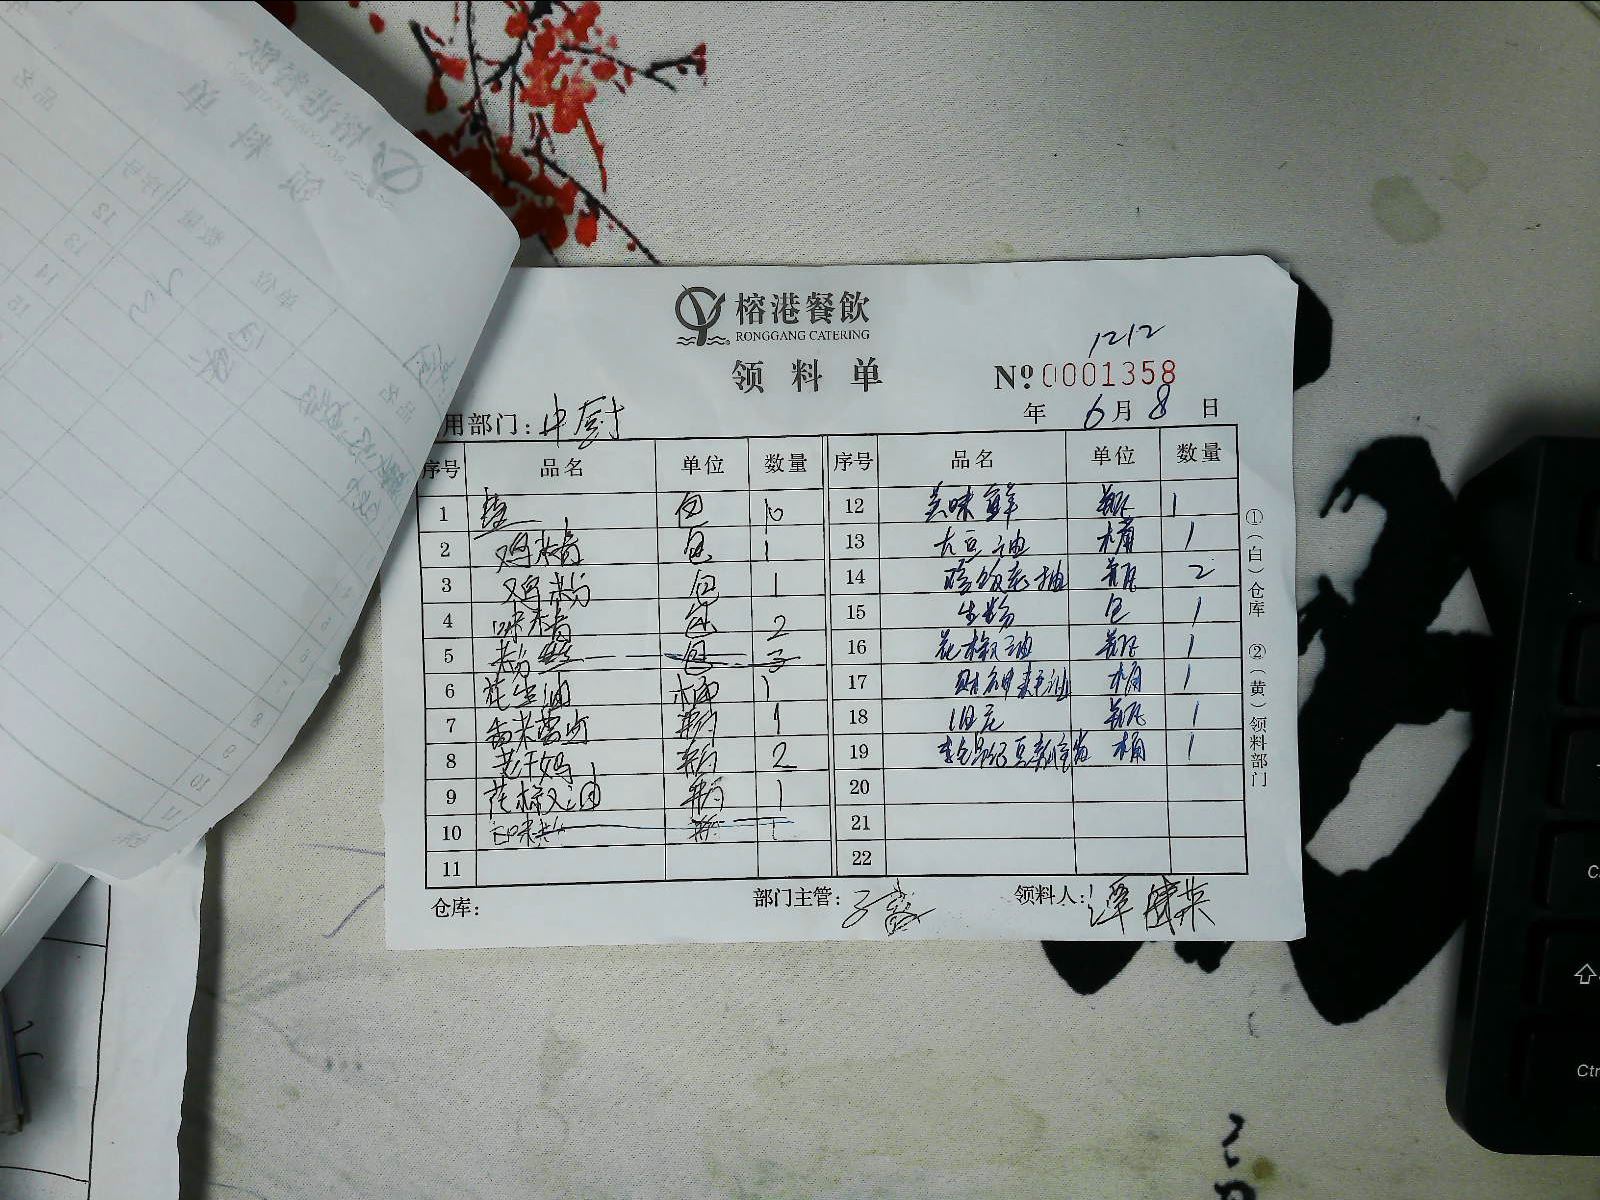 榕港餐飲
RONGGANG CATERING
领料单
1212
№ 0001358
用部门：中厨
年 6月 8 日
序号 品名 单位 数量 序号 品名 单位 数量
1 盐 包 10 12 美味鲜 瓶 1
2 鸡精 包 1 13 大豆油 桶 1
3 鸡粉 包 1 14 瓶 2
4 味精 包 2 15 生粉 包 1
5 粉丝 包 3 16 花椒油 瓶 1
6 花生油 桶 1 17 财神蚝油 桶 1
7 瓶 1 18 瓶 1
8 老干妈 瓶 2 19 桶 1
9 花椒油 瓶 1 20
10 瓶 1 21
11 22
①（白）仓库 ②（黄）领料部门
仓库： 部门主管： 领料人：谭健英
Ctr